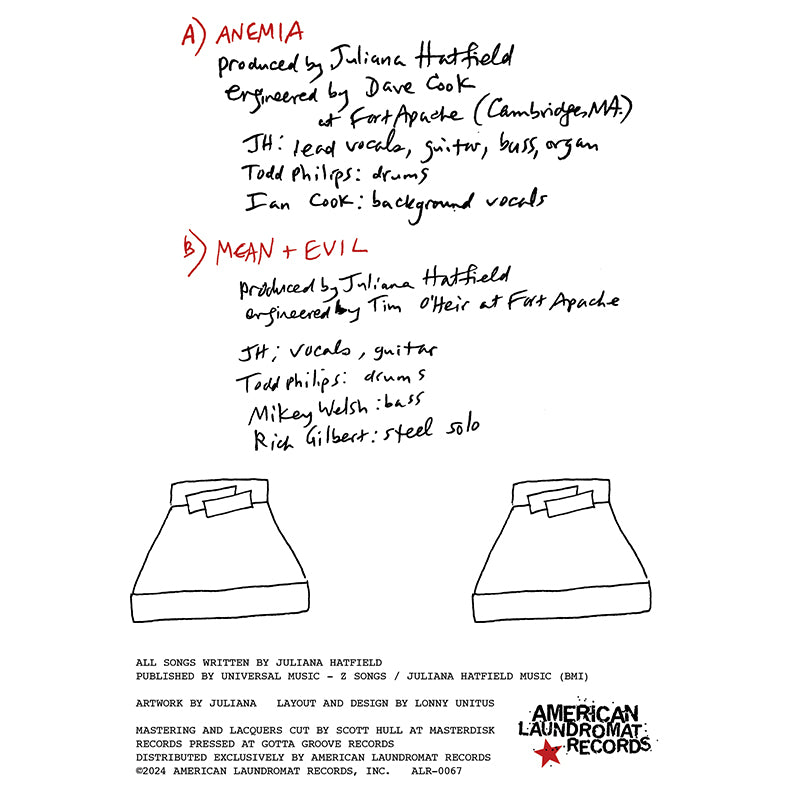 A) ANEMIA
produced by Juliana Hatfield
engineered by Dave Cook
at Fort Apache (Cambridge, MA.)
JH: lead vocals, guitar, bass, organ
Todd Philips: drums
Ian Cook: background vocals
B) MEAN + EVIL
produced by Juliana Hatfield
engineered by Tim O'Heir at Fort Apache
JH; vocals, guitar
Todd Philips: drums
Mikey Welsh: bass
Rich Gilbert: steel solo
ALL SONGS WRITTEN BY JULIANA HATFIELD
PUBLISHED BY UNIVERSAL MUSIC - Z SONGS / JULIANA HATFIELD MUSIC (BMI)
ARTWORK BY JULIANA LAYOUT AND DESIGN BY LONNY UNITUS
MASTERING AND LACQUERS CUT BY SCOTT HULL AT MASTERDISK
RECORDS PRESSED AT GOTTA GROOVE RECORDS
DISTRIBUTED EXCLUSIVELY BY AMERICAN LAUNDROMAT RECORDS
©2024 AMERICAN LAUNDROMAT RECORDS, INC. ALR-0067
AMERICAN
LAUNDROMAT
RECORDS